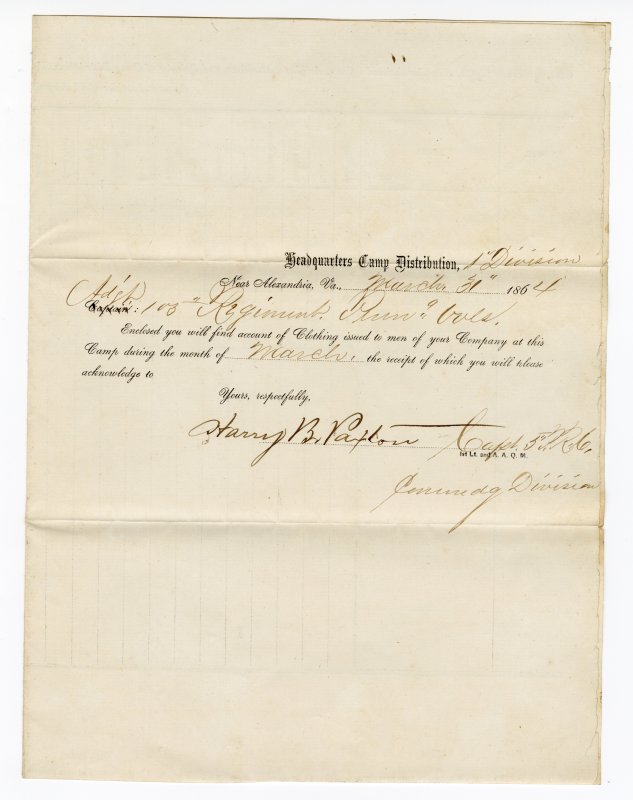 Headquarters Camp Distribution, 1st Division
Near Alexandria, Va., March 31st 1864
Adgt.
Captain: 103rd Regiment Penna Vols.
Enclosed you will find account of Clothing issued to men of your Company at this
Camp during the month of March, the receipt of which you will please
acknowledge to
Yours, respectfully,
Harry B. Paxton Capt.
1st Lt. and A. A. Q. M.
Commdg Division